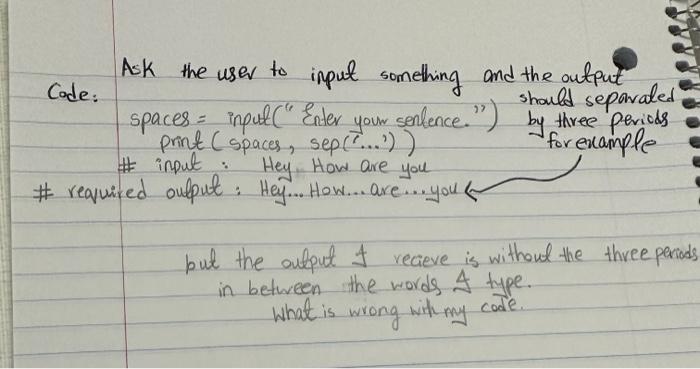 Ask the user to input something and the output
Code: should separated
spaces = input(" Enter your sentence.") by three periods
print (spaces, sep('...')) for example
# input : Hey How are you
# required output : Hey... How... are...you
but the output I recieve is without the three periods
in between the words I type.
What is wrong with my code.